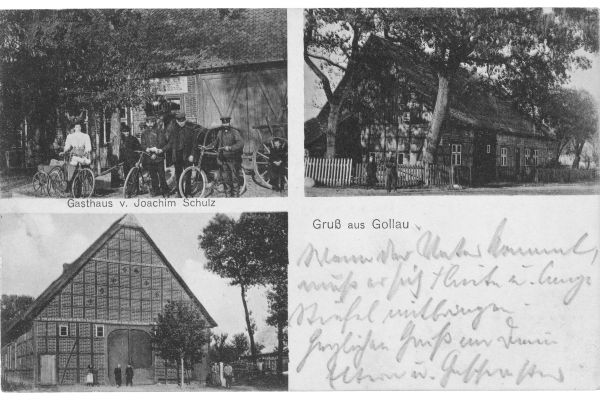 Gasthaus v. Joachim Schulz
Gruß aus Gollau
Wann der Vater kommt,
muß er sich Hüte u. lange
Stiefel mitbringen.
Herzlichen Gruß von Deinen
Eltern u. Geschwister